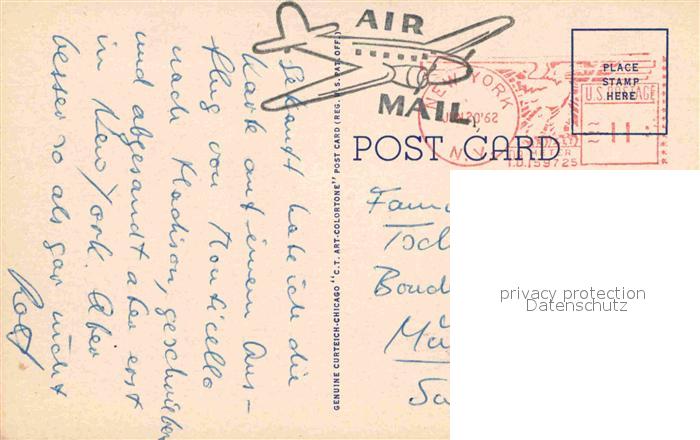 AIR
MAIL
NEW YORK
JUN 20 '62
N.Y.
U.S. POSTAGE
11
METER
159725
PLACE
STAMP
HERE
POST CARD
GENUINE CURTEICH-CHICAGO "C.T. ART-COLORTONE" POST CARD (REG. U.S. PAT. OFF.)
habe ich die
Karte auf einem Aus-
flug von Monticello
nach Madison, geschrieben
und abgesandt aber erst
in New York. Aber
besser so als gar nicht
Rolf
Fam
Tsch
Boud
Mü
privacy protection
Datenschutz